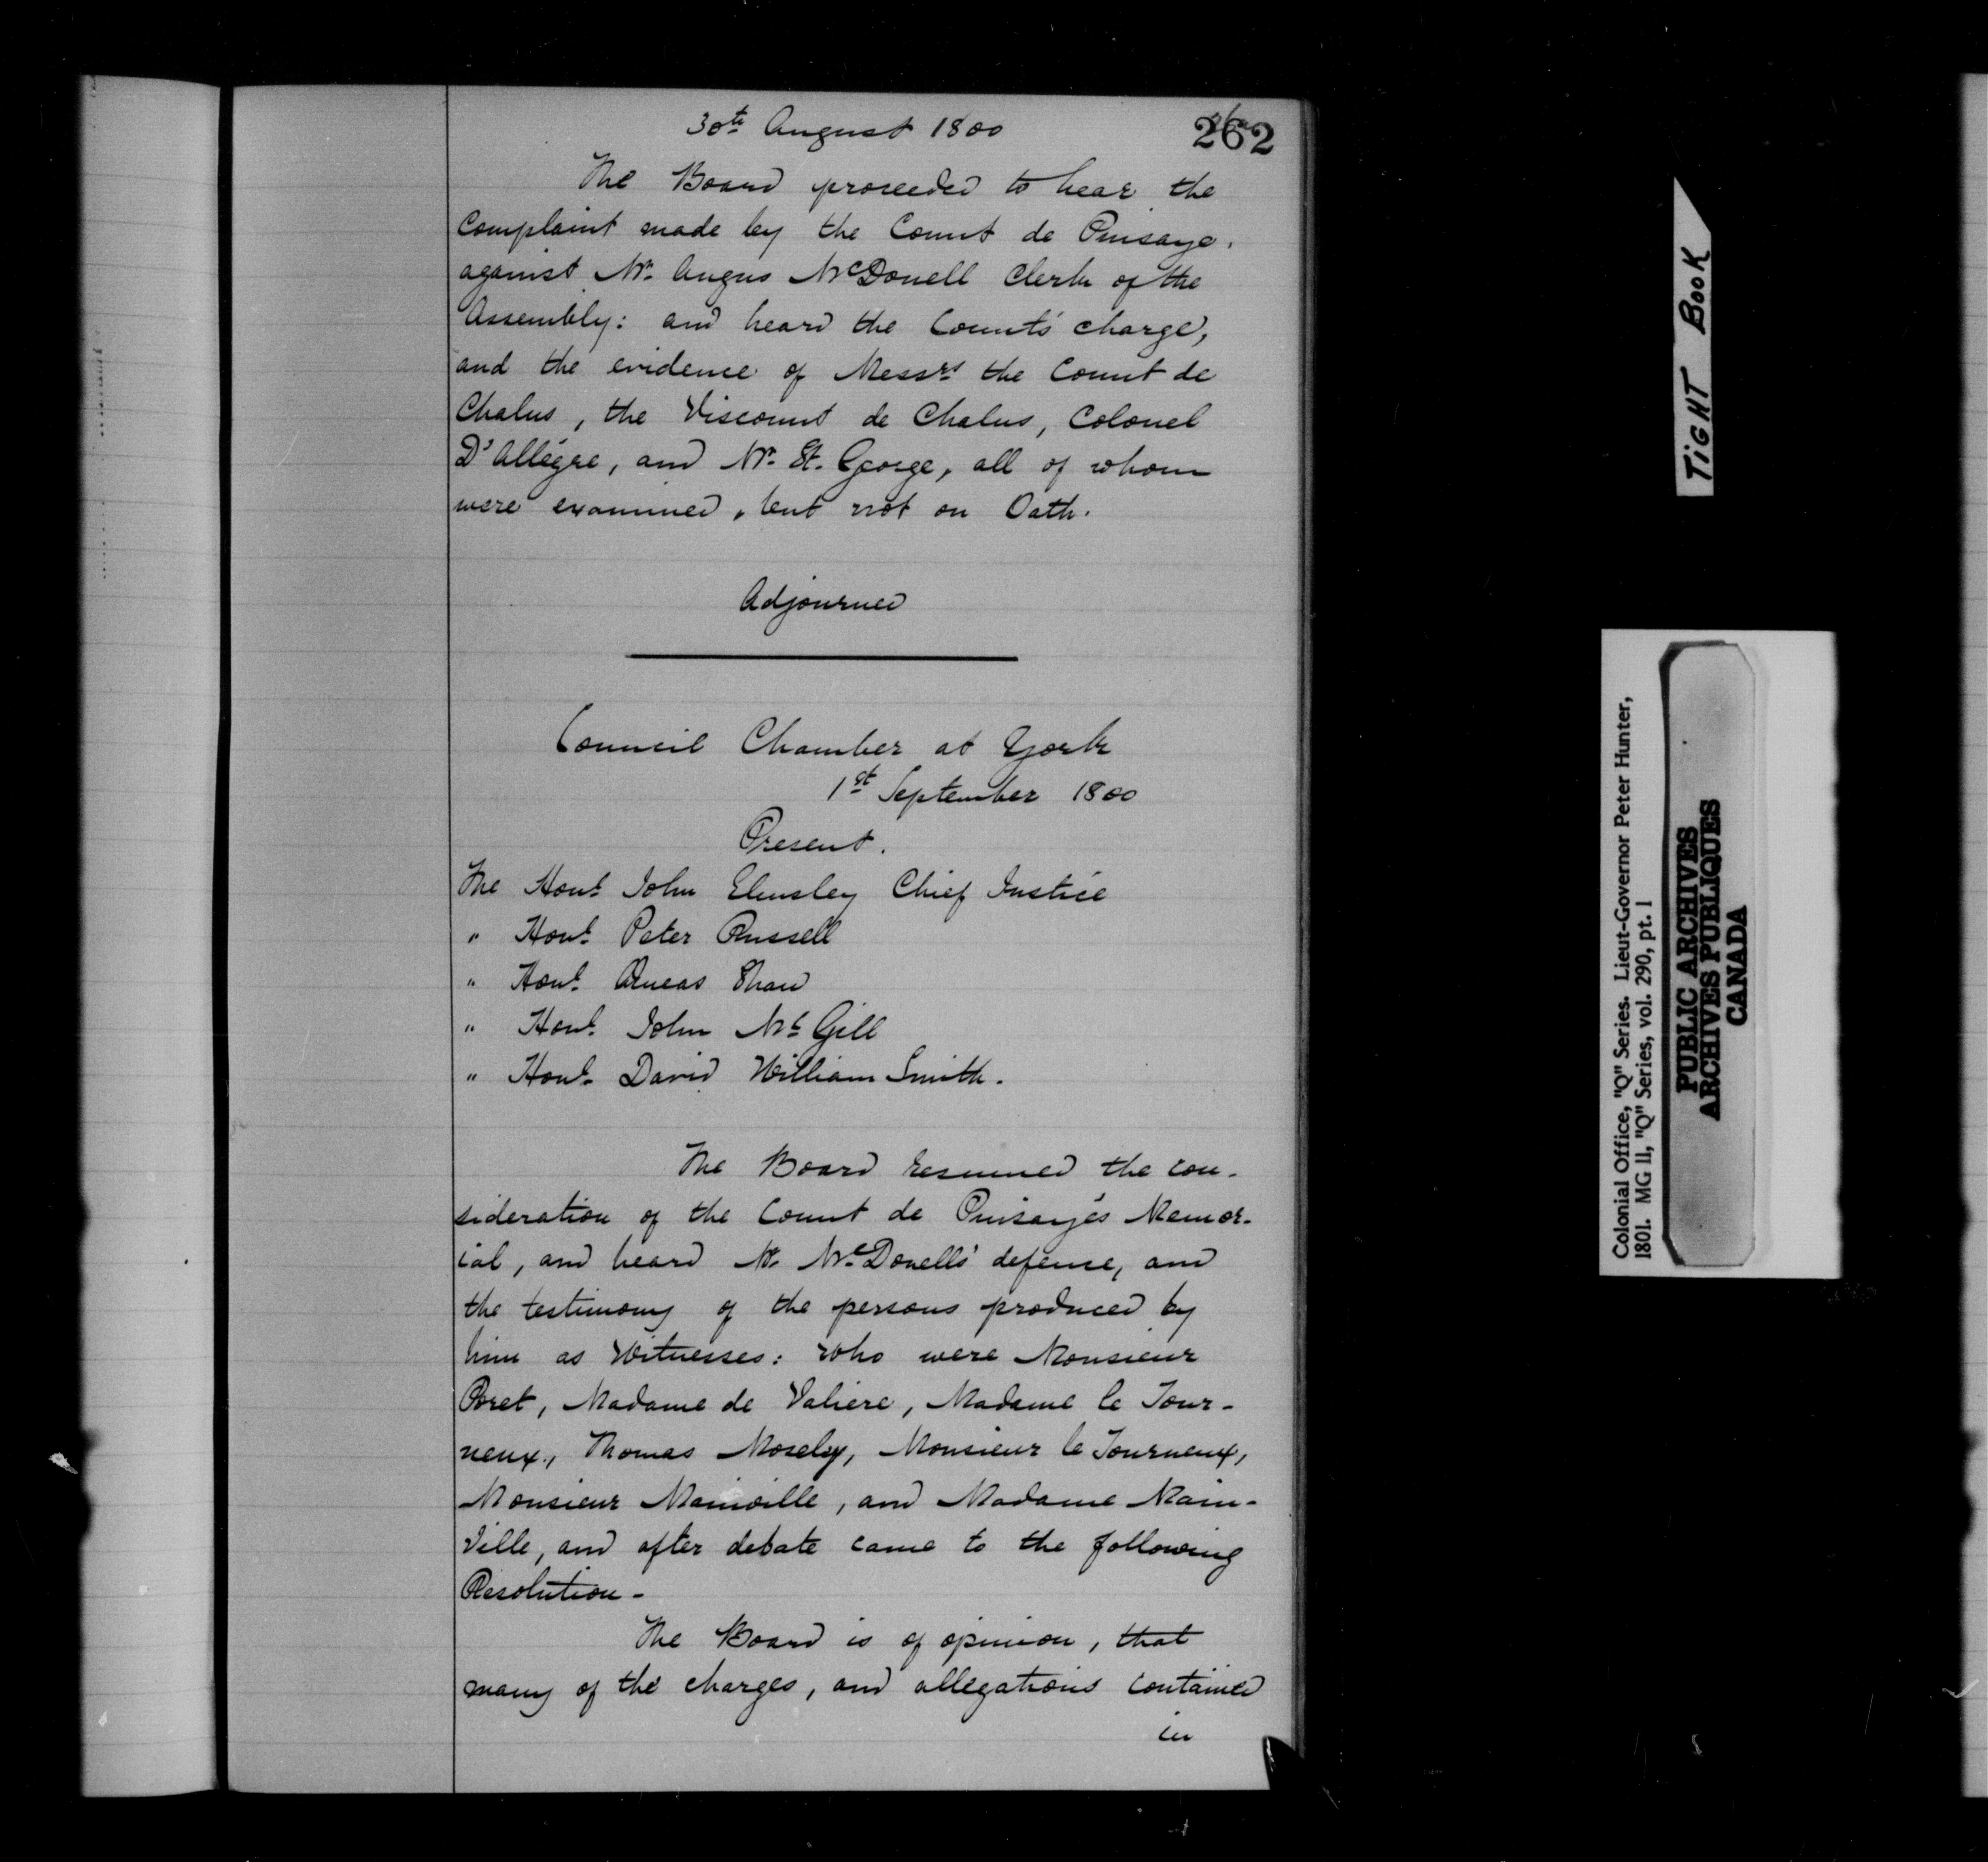 30th August 1800
262
The Board proceeded to hear the
Complaint made by the Count de Puisaye,
against Mr. Angus McDonell Clerk of the
Assembly: and heard the Count's charge,
and the evidence of Messrs the Count de
Chalus, the Viscount de Chalus, Colonel
D'Allègre, and Mr. St. George, all of whom
were examined, but not on Oath.
Adjourned
Council Chamber at York
1st September 1800
Present.
The Honl. John Elmsley Chief Justice
" Honl. Peter Russell
" Honl. Æneas Shaw
" Honl. John McGill
" Honl. David William Smith.
The Board resumed the con-
sideration of the Count de Puisaye's Memor-
ial, and heard Mr. McDonell's defense, and
the testimony of the persons produced by
him as Witnesses: who were Monsieur
Boret, Madame de Valiere, Madame le Tour-
neux, Thomas Mosely, Monsieur le Tourneux,
Monsieur Mainville, and Madame Main-
ville, and after debate came to the following
Resolution -
The Board is of opinion, that
many of the charges, and allegations contained
in
TIGHT BOOK
Colonial Office, "Q" Series. Lieut-Governor Peter Hunter,
1801. MG 11, "Q" Series, vol. 290, pt. 1
PUBLIC ARCHIVES
ARCHIVES PUBLIQUES
CANADA